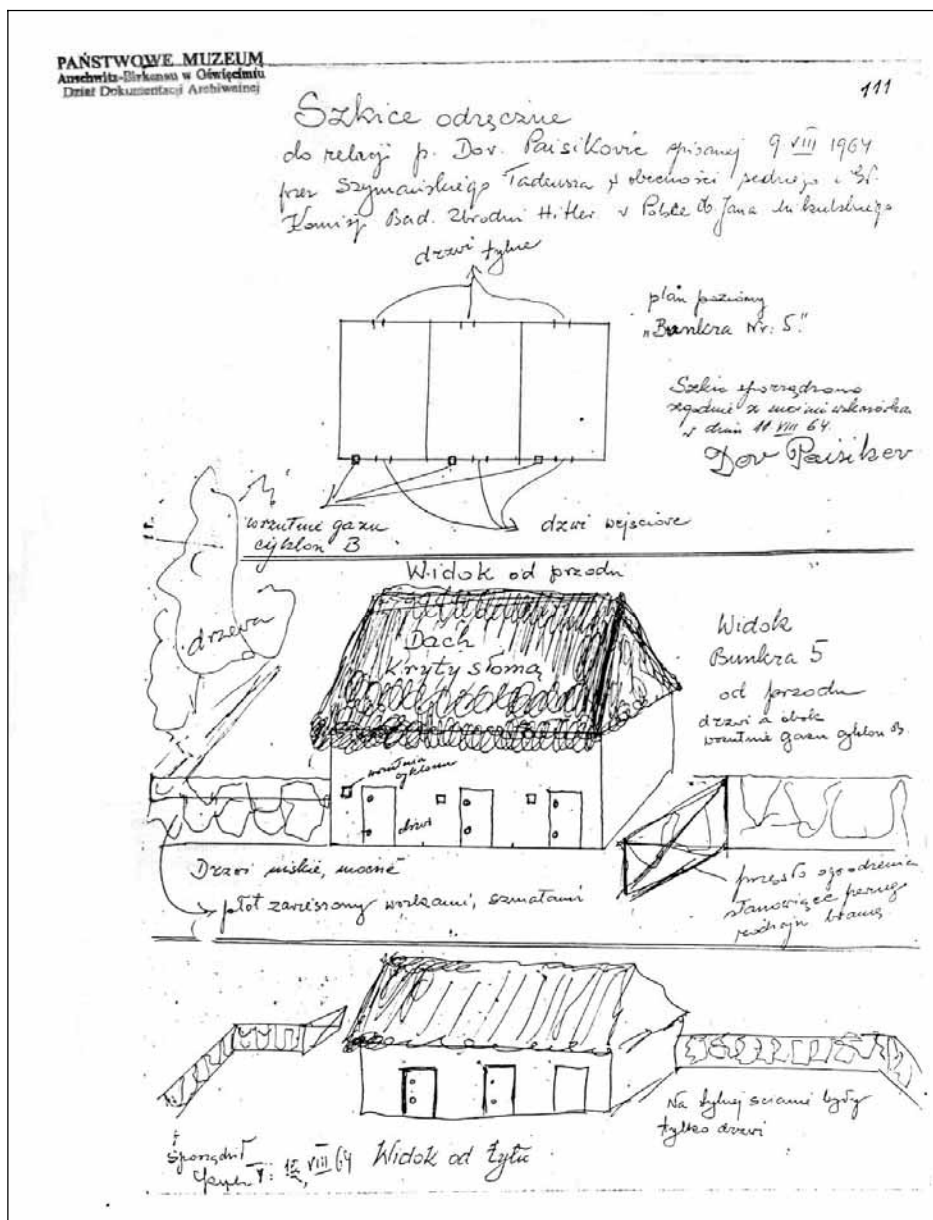 PAŃSTWOWE MUZEUM
Auschwitz-Birkenau w Oświęcimiu
Dział Dokumentacji Archiwalnej
111
Szkice odręczne
do relacji p. Dov. Paisiković spisanej 9 VIII 1964
przez Szymańskiego Tadeusza w obecności sędziego i
Komisji Bad. Zbrodni Hitler. w Polsce Jana Mikulskiego
drzwi tylne
plan poziomy
"Bunkra Nr: 5."
Szkic sporządzono
zgodnie z moimi
w dniu 11 VIII 64.
Dov Paisikov
wrzutnie gazu
cyklon B
drzwi wejściowe
Widok od przodu
drzewa
Dach
Kryty słomą
Widok
Bunkra 5
od przodu
drzwi a obok
wrzutnie gazu cyklon B.
wrzutnia
cyklonu
drzwi
Drzwi niskie, mocne
płot zawieszony workami, szmatami
przęsło ogrodzenia
stanowiące pewnego
rodzaju bramę
Na tylnej ścianie były
tylko drzwi
Sporządził
VIII 64
Widok od tyłu